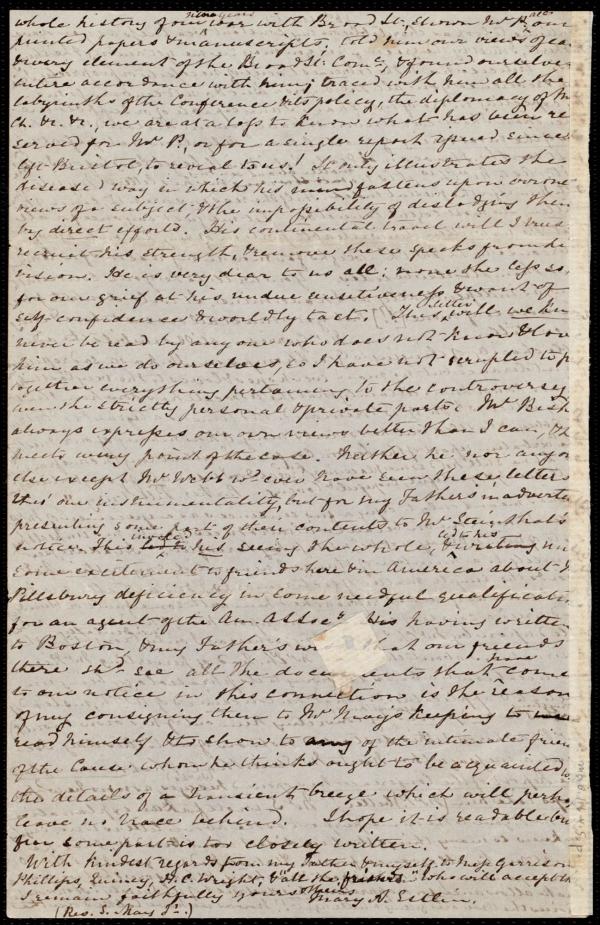 whole history of our nine years war with Broad St., shown Mr P. all our
printed papers & manuscripts, told him our views of ea
& every element of the Broad St. Comee, & found ourselves
entire accordance with him; traced with him all the
labyrinths of the Conference & its policy, the diplomacy of M
Ch. &c. &c., we are at a loss to know what has been re
served for Mr P., or for a single report issued since
left Bristol, to reveal to us! It only illustrates the
diseased way in which his mind fastens upon
views of a subject, & the impossibility of dislodging them
by direct efforts. His continental travel will I trus
recruit his strength, & remove these specks from hi
vision. He is very dear to us all; none the less so,
for our grief at his undue sensitiveness & want of
self confidence & worldly tact. This letter will we kn
never be read by anyone who does not know & lov
him as we do ourselves, so I have not scrupled to p
together everything pertaining to the controversy
even the strictly personal & private parts. Mr Bish
always expresses our own views better than I can, & h
meets every point of the case. Neither he nor anyon
else except Mr Webb wd ever have seen these letters
thro' our instrumentality, but for my Father's inadverta
presenting some part of their contents to Mr Steinthal's
notice. This involved his seeing the whole, & led to his writing
some excitement to friends here & in America about
Pillsbury deficiency in some needful qualificati
for an agent of the Am. Assocn. His having written
to Boston, & my Father's wish that our friends
there shd see all the documents that have come
to our notice in this connection is the reason
of my consigning them to Mr Mays keeping to
read himself & to show to any of the intimate frien
of the Cause whom he thinks ought to be acquainted w
the details of a transient breeze which will perha
leave no trace behind. I hope it is readable bu
fear some part is too closely written.
With kindest regards from my Father & myself to Messrs Garrison
Phillips, Quincy, H. C. Wright, & "all the friends" who will accept th
I remain faithfully yours
Mary A. Estlin.
(Rev. S. May Jr.)